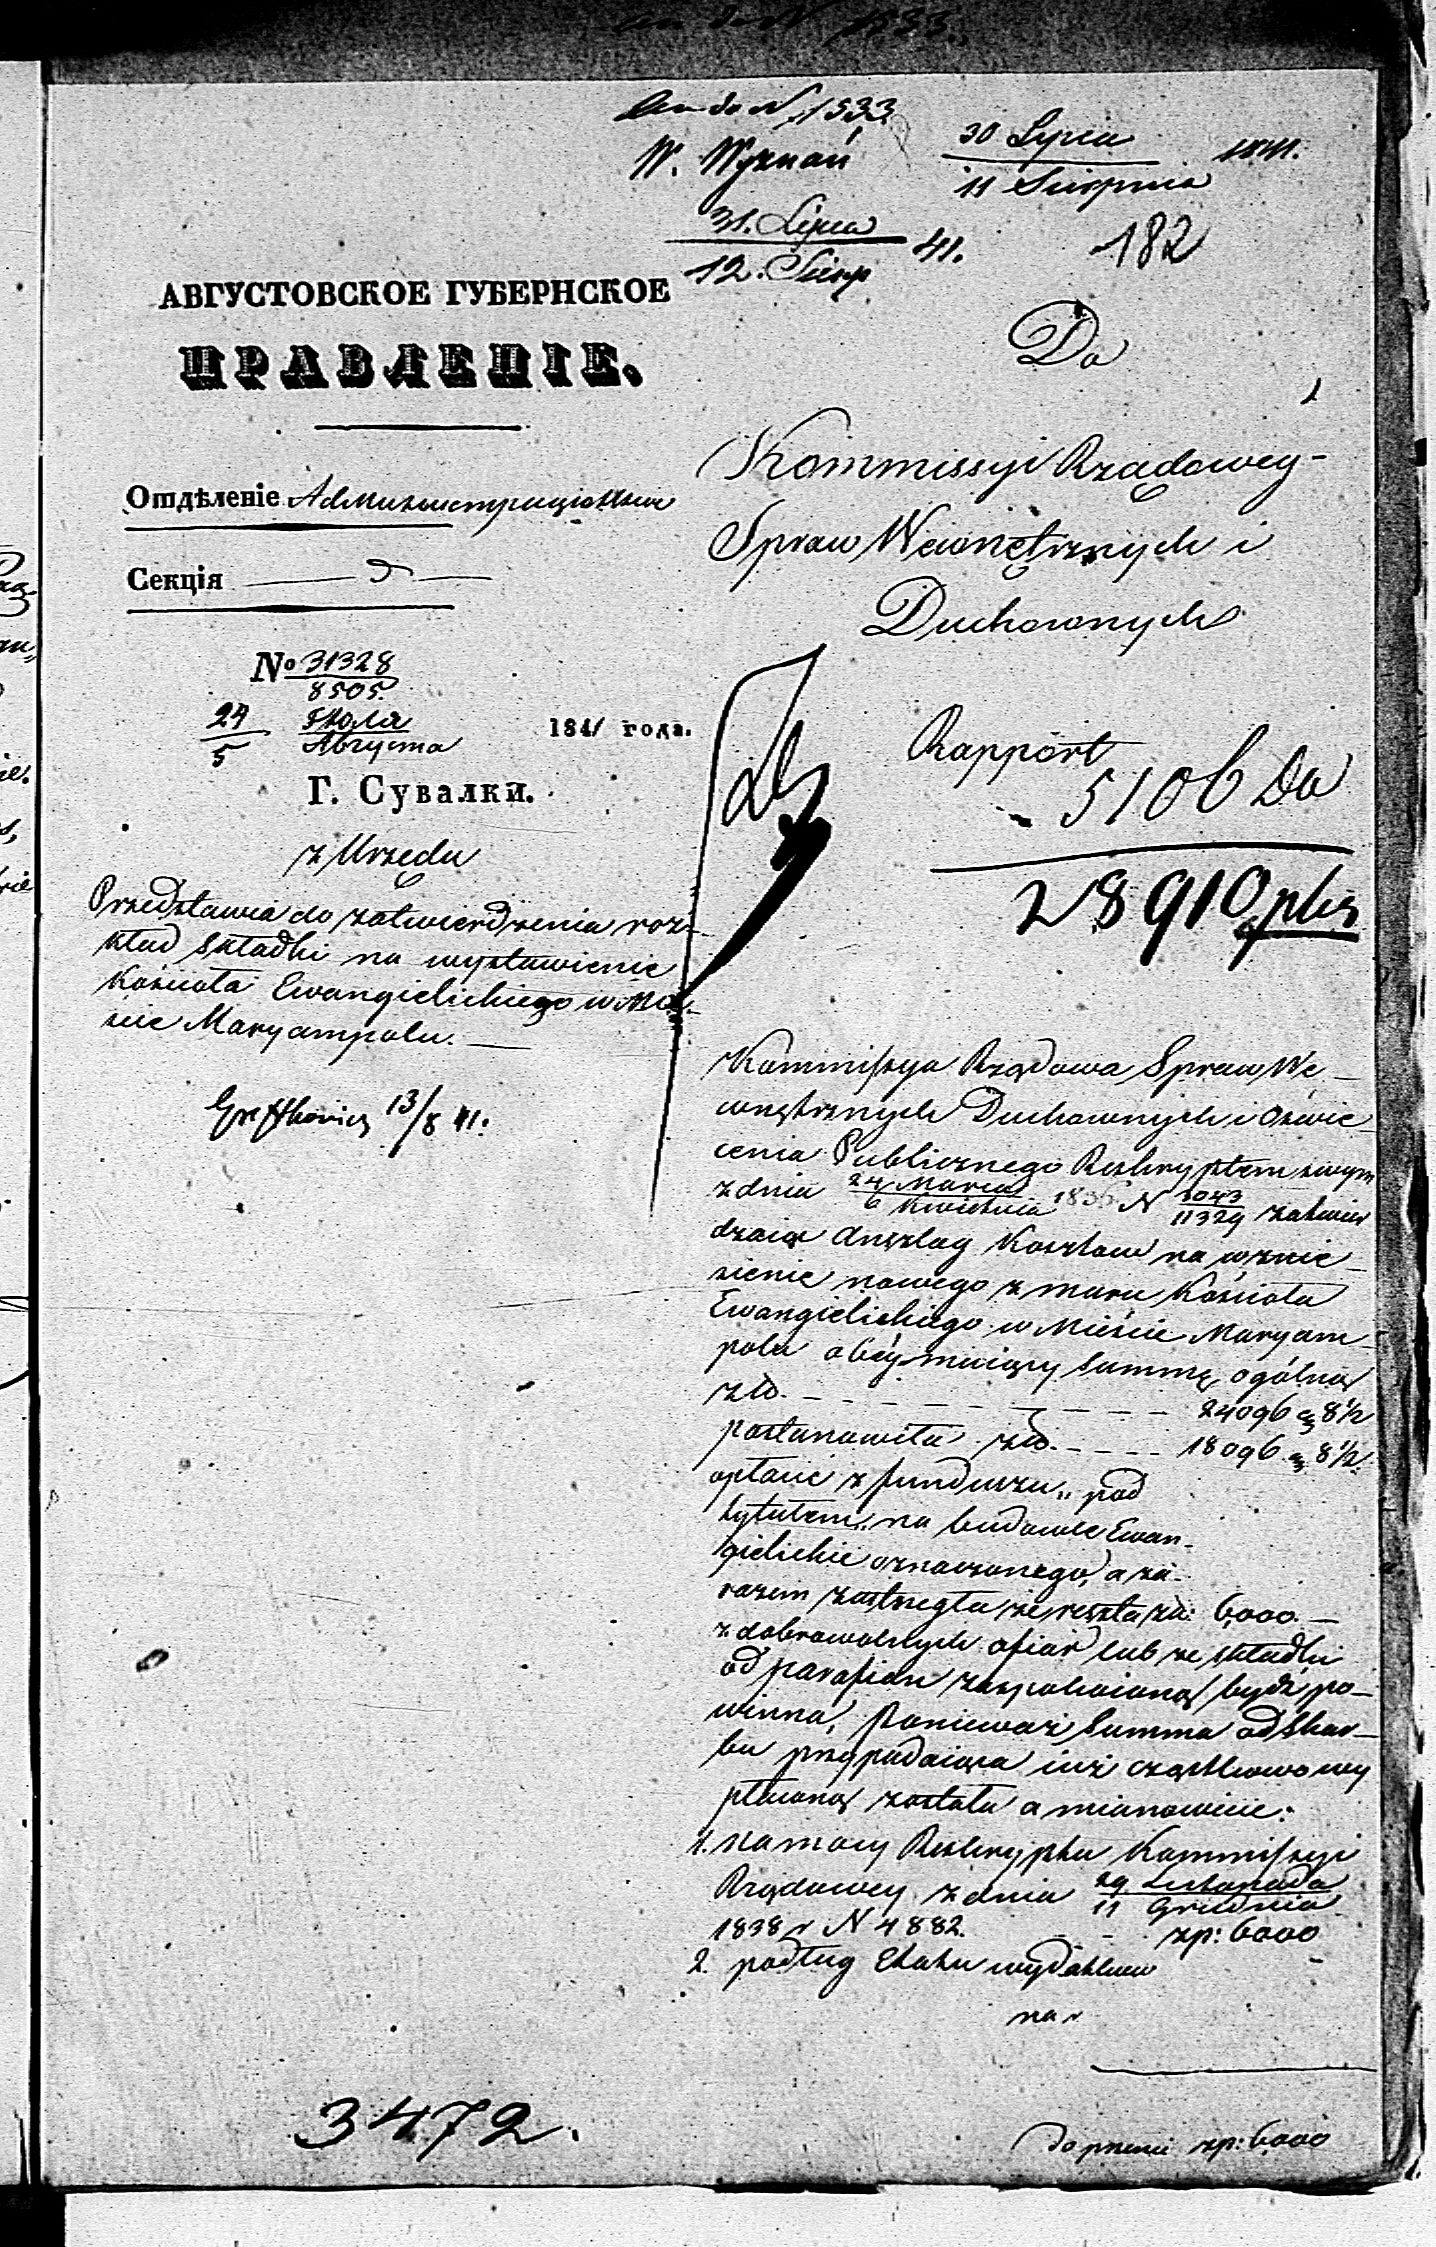 do N 1533
W. Wyznań
30 Lipca
11 Sierpnia
1841.
31. Lipca
12. Sierp
41.
182
АВГУСТОВСКОЕ ГУБЕРНСКОЕ
ПРАВЛЕНІЕ.
Отдѣленіе Администраціонное
Секція
№ 31328
8505.
24 Іюля
5 Августа
1841 года.
Г. Сувалки.
z Urzędu
Przedstawia do zatwierdzenia roz-
kład składki na wystawienie
Kościoła Ewangielickiego w Mie-
ście Maryampolu.
13/8 41.
3472.
Do
Kommissyi Rządowey
Spraw Wewnętrznych i
Duchownych
Rapport
5106 Da
28910
Kommissya Rządowa Spraw We-
wnętrznych Duchownych i Oświe-
cenia Publicznego Reskryptem swym
z dnia 24 Marca
6 Kwietnia 1835 N 1043
11329 zatwier
dzaiąc Anszlag Kosztow na wznie-
sienie nowego z muru Kościoła
Ewangielickiego w Mieście Maryam-
polu obeymuiący Summę ogólną
złp. 24096 g 8½
postanowiła złp. 18096 g 8½
opłacić z funduszu „pod
tytułem „na budowle Ewan-
gielickie oznaczonego, a za-
razem zastrzegła że reszta zł: 6,000.
z dobrowolnych ofiar lub ze składki
od parafian zaspokoioną bydź po-
winna, Ponieważ Summa od Skar-
bu przypadaiąca iuż cząstkowo wy
płaconą została a mianowicie:
1. na mocy Reskryptu Kommissyi
Rządowey z dnia 29 Listopada
11 Grudnia
1838 r N 4882. zp: 6000
2. podług Etatu wydatkow
na
zp: 6000